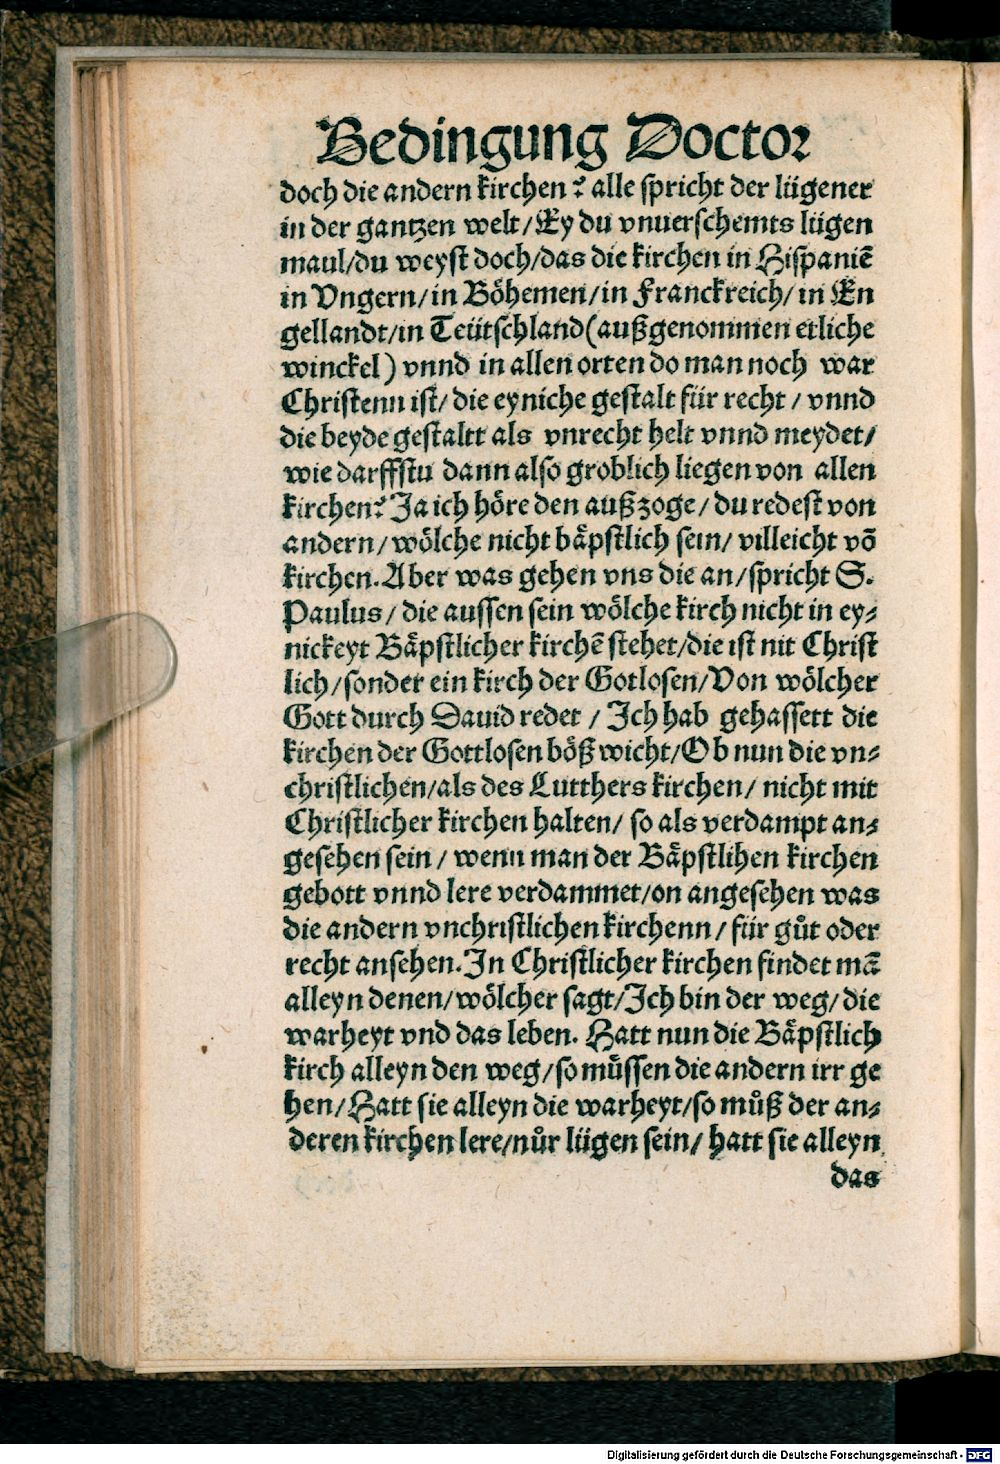 Bedingung Doctor
doch die andern kirchen? alle spricht der lügener
in der gantzen welt/Ey du vnuerschemts lügen
maul/du weyst doch/das die kirchen in Hispaniē
in Vngern/in Böhemen/in Franckreich/in En
gellandt/in Teütschland(außgenommen etliche
winckel) vnnd in allen orten do man noch war
Christenn ist/ die eyniche gestalt für recht / vnnd
die beyde gestaltt als vnrecht helt vnnd meydet/
wie darffstu dann also groblich liegen von allen
kirchen? Ja ich höre den außzoge/ du redest von
andern/wölche nicht bäpstlich sein/ villeicht vō
kirchen. Aber was gehen vns die an/spricht S.
Paulus/ die aussen sein wölche kirch nicht in ey⸗
nickeyt Bäpstlicher kirchē stehet/die ist nit Christ
lich/sonder ein kirch der Gotlosen/Von wölcher
Gott durch Dauid redet / Ich hab gehassett die
kirchen der Gottlosen bößwicht/Ob nun die vn⸗
christlichen/als des Lutthers kirchen/ nicht mit
Christlicher kirchen halten/ so als verdampt an⸗
gesehen sein / wenn man der Bäpstlihen kirchen
gebott vnnd lere verdammet/on angesehen was
die andern vnchristlichen kirchenn/ für gůt oder
recht ansehen. In Christlicher kirchen findet mā
alleyn denen/wölcher sagt/Ich bin der weg/die
warheyt vnd das leben. Hatt nun die Bäpstlich
kirch alleyn den weg/so müssen die andern irr ge
hen/Hatt sie alleyn die warheyt/so můß der an⸗
deren kirchen lere/nůr lügen sein/ hatt sie alleyn
das
Digitalisierung gefördert durch die Deutsche Forschungsgemeinschaft - DFG